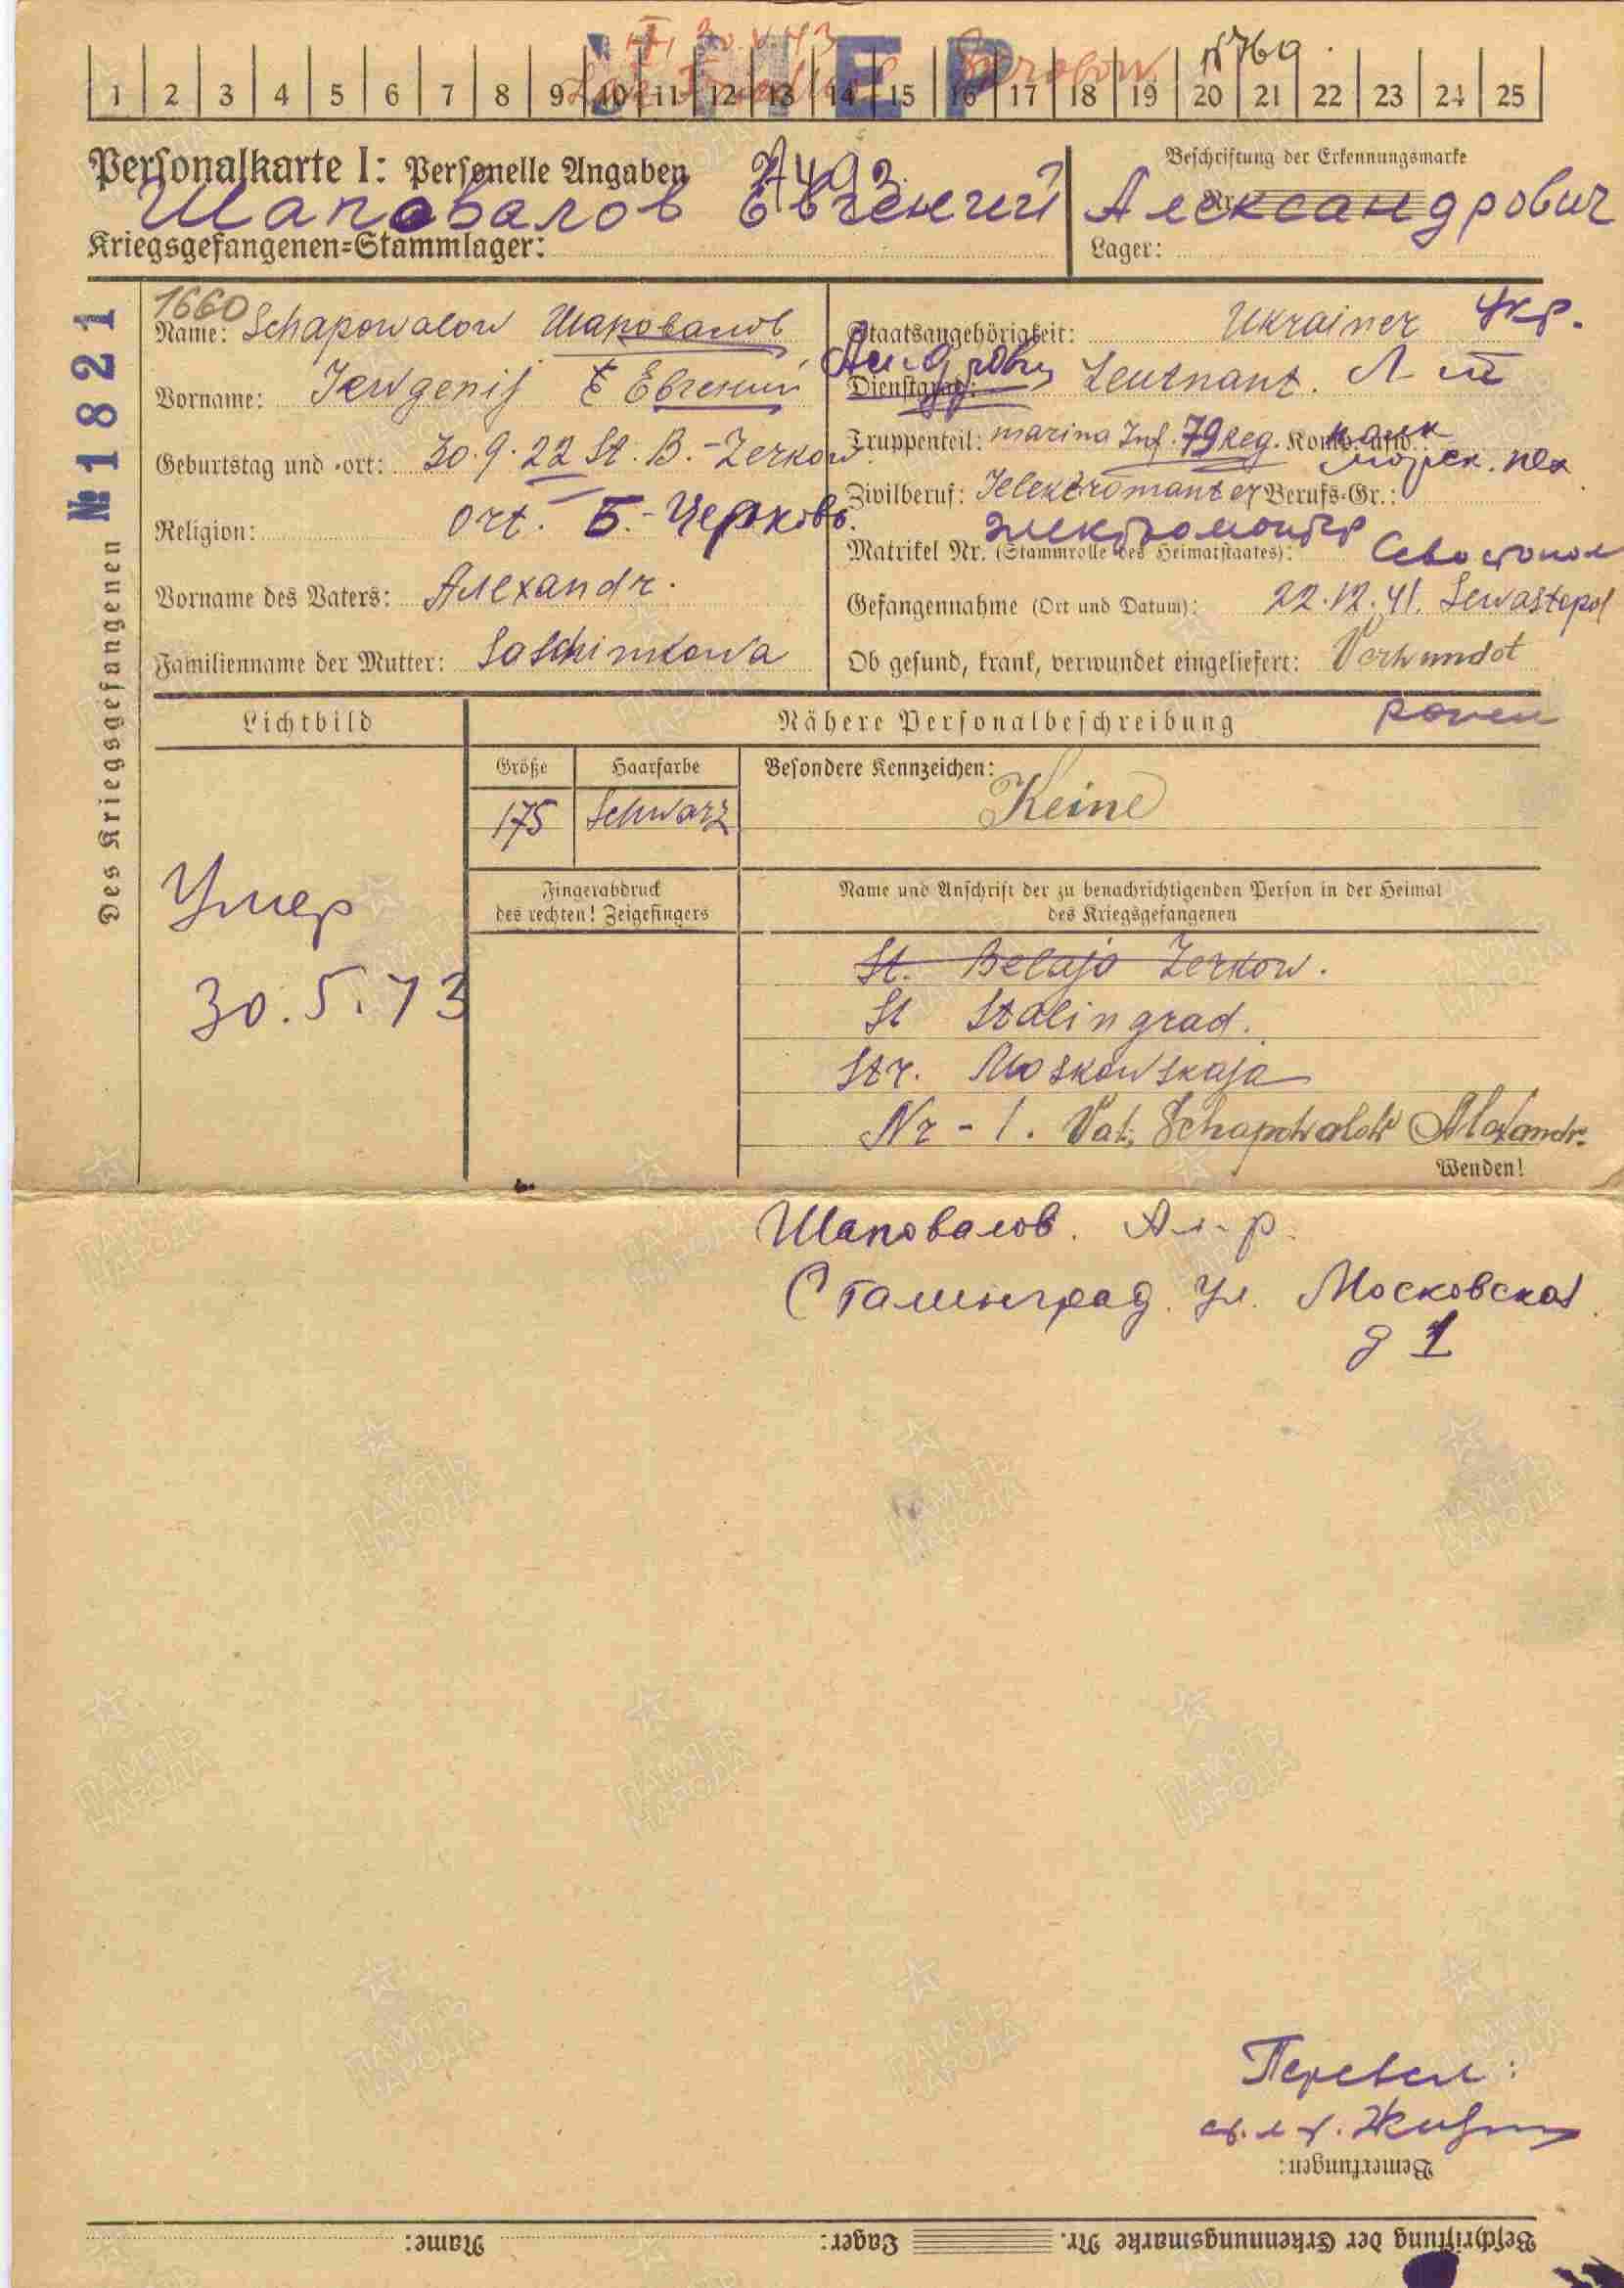 30.V.43
№769
1 2 3 4 5 6 7 8 9 10 11 12 13 14 15 16 17 18 19 20 21 22 23 24 25
Personalkarte I: Personelle Angaben
Beschriftung der Erkennungsmarke
Шаповалов Евгений Александрович
Nr.
Kriegsgefangenen=Stammlager:
Lager:
Des Kriegsgefangenen № 1821
1660
Name: Schapowalow Шаповалов
Staatsangehörigkeit: Ukrainer Укр.
Vorname: Jewgenij Евгений
Dienstgrad: Leutnant. Л-т
Geburtstag und -ort: 30.9.22 St. B.-Zerkow
Truppenteil: marina Inf. 79 Reg. Komp. usw.:
морск. пех
Religion:
ort. Б.-Церковь.
Zivilberuf: Jelektromanter Berufs-Gr.:
электромонтер
Matrikel Nr. (Stammrolle des Heimatstaates):
Севастопол
Vorname des Vaters: Alexandr.
Gefangennahme (Ort und Datum): 22.12.41. Sewastopol
Familienname der Mutter:
Ob gesund, krank, verwundet eingeliefert: Verwundet
ранен
Lichtbild
Nähere Personalbeschreibung
Größe
Haarfarbe
Besondere Kennzeichen:
175
Schwarz
Keine
Fingerabdruck
des rechten! Zeigefingers
Name und Anschrift der zu benachrichtigenden Person in der Heimat
des Kriegsgefangenen
Умер
30.5.43
St. Belaja Zerkow.
St Stalingrad.
Str. Moskowskaja
Nr - 1. Vat. Schapowalow Alexandr.
Wenden!
Шаповалов. Ал-р.
Сталинград. ул. Московская
д 1
Перевел:
Bemerkungen:
Beschriftung der Erkennungsmarke Nr. Lager: Name:
ПАМЯТЬ
НАРОДА